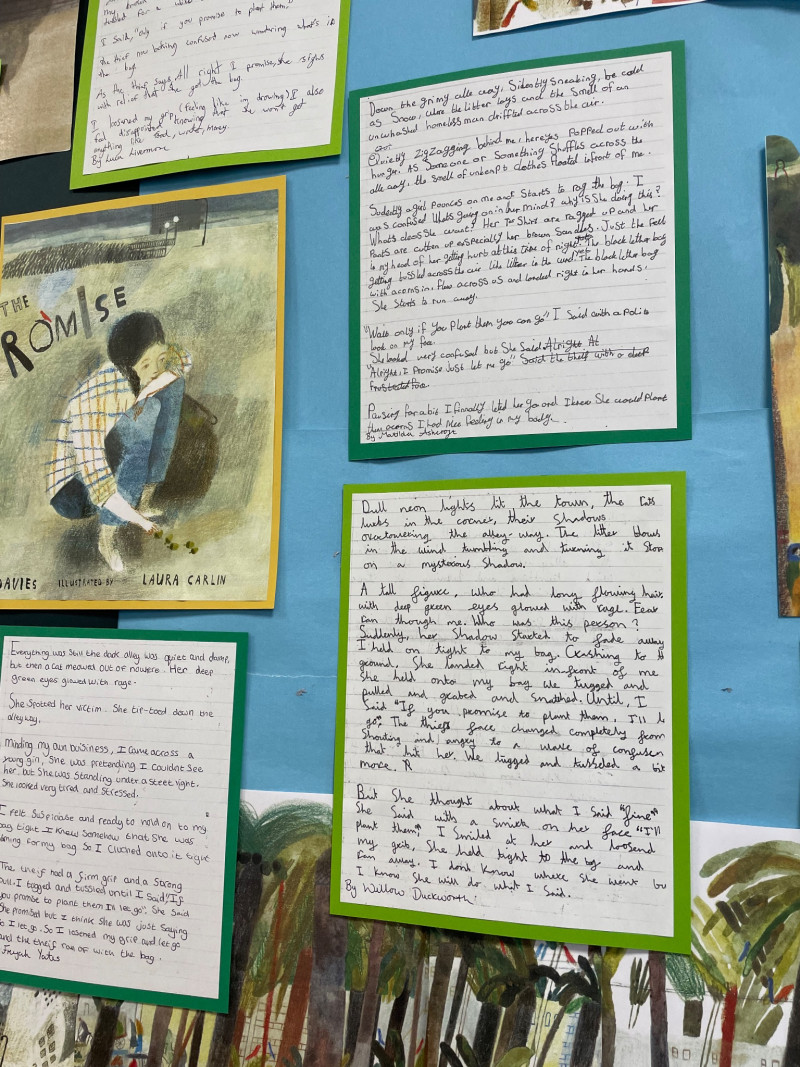 I said, "Only if you promise to plant them."
the thief now looking confused now wondering what's in
the bag.
As the thief says, All right I promise, she sighs
with relief that she got the bag.
I loosened my grip (feeling like im drowning) I also
feel disappointed knowing that she won't get
anything like food, water, money.
By Luca Livermore
THE
PROMISE
DAVIES ILLUSTRATED BY LAURA CARLIN
Down the grimy alle way, Silently sneaking, be cold
as Snow, were the litter lays and the smell of an
unwhashed homeless man driffted across the air.
Quietly zigzagging behind me, her eyes Popped out with
hunger. As Someone or Something Shuffles across the
alle way, the smell of unkempt clothes floated infront of me.
Sudently a girl Pounces on me and Starts to rag the bag. I
was confused Whats going on in her mind? why is She doing this?
What does She want? Her Shirt are ragged up and her
Pants are cutten up especially her brown Sandles. Just the Feel
in my head of her getting hurt at this time of night. The black letter bag
getting tussled across the air like litter in the wind. The black letter bag
with acorns in, flew across us and landed right in her hands.
She Starts to run away.
"Wait only if you Plant them you can go" I Said with a Polite
look on my face.
She looked very confused but She Said Alright. At
"Alright, I Promise Just let me go" Said the theif with a
face.
Pausing for a bit I finnally letted her go and I knew She would Plant
thes acorns I had nice feeling in my body.
By Matilda Ashcroft
Dull neon lights lit the town, the cats
lurks in the corner, their shadows
overtowering the alley-way. The litter blows
in the wind tumbling and turening it Stops
on a mysterious Shadow.
A tall figure, who had long flowing hair
with deep green eyes glowed with rage. Fear
ran though me. Who was this person?
Suddenly, her Shadow Started to fade away
I held on tight to my bag. Crashing to
ground. She landed right infront of me
She held onto my bag we tugged and
pulled and grabed and Snatched. Until, I
Said "If you promise to plant them, I'll
go". The thiefs face changed completely from
Shouting and angry to a wave of confusen
that hit her. We tugged and tussled a bit
more. R
But She thought about what I Said "fine"
She Said with a smirk on her face "I'll
plant them". I Smiled at her and loosend
My grip. She held tight to the bag and
ran away. I dont Know where She went
I know She will do what I Said.
By Willow Duckworth
Everything was Still the dark alley was quiet and damp,
but then a cat meawed out of nowere. Her deep
green eyes glowed with rage.
She Spotted her victim. She tip-toed down the
alleyway.
Minding my own business, I came across a
young girl, She was pretending I couldnt See
her but She was Standing under a street light.
She looked very tired and Stressed.
I felt Suspiciose and ready to hold on to my
bag tight I Knew Somehow that She was
aiming for my bag So I cluched onto it tight
The theif had a firm grip and a Strong
Pull. I tugged and tussled until I Said "If
you promise to plant them I'll let go". She Said
She promised but I think She was Just Saying
So I let go. So I losened my grip and let go
and the theif ran of with the bag.
Freyah Yates